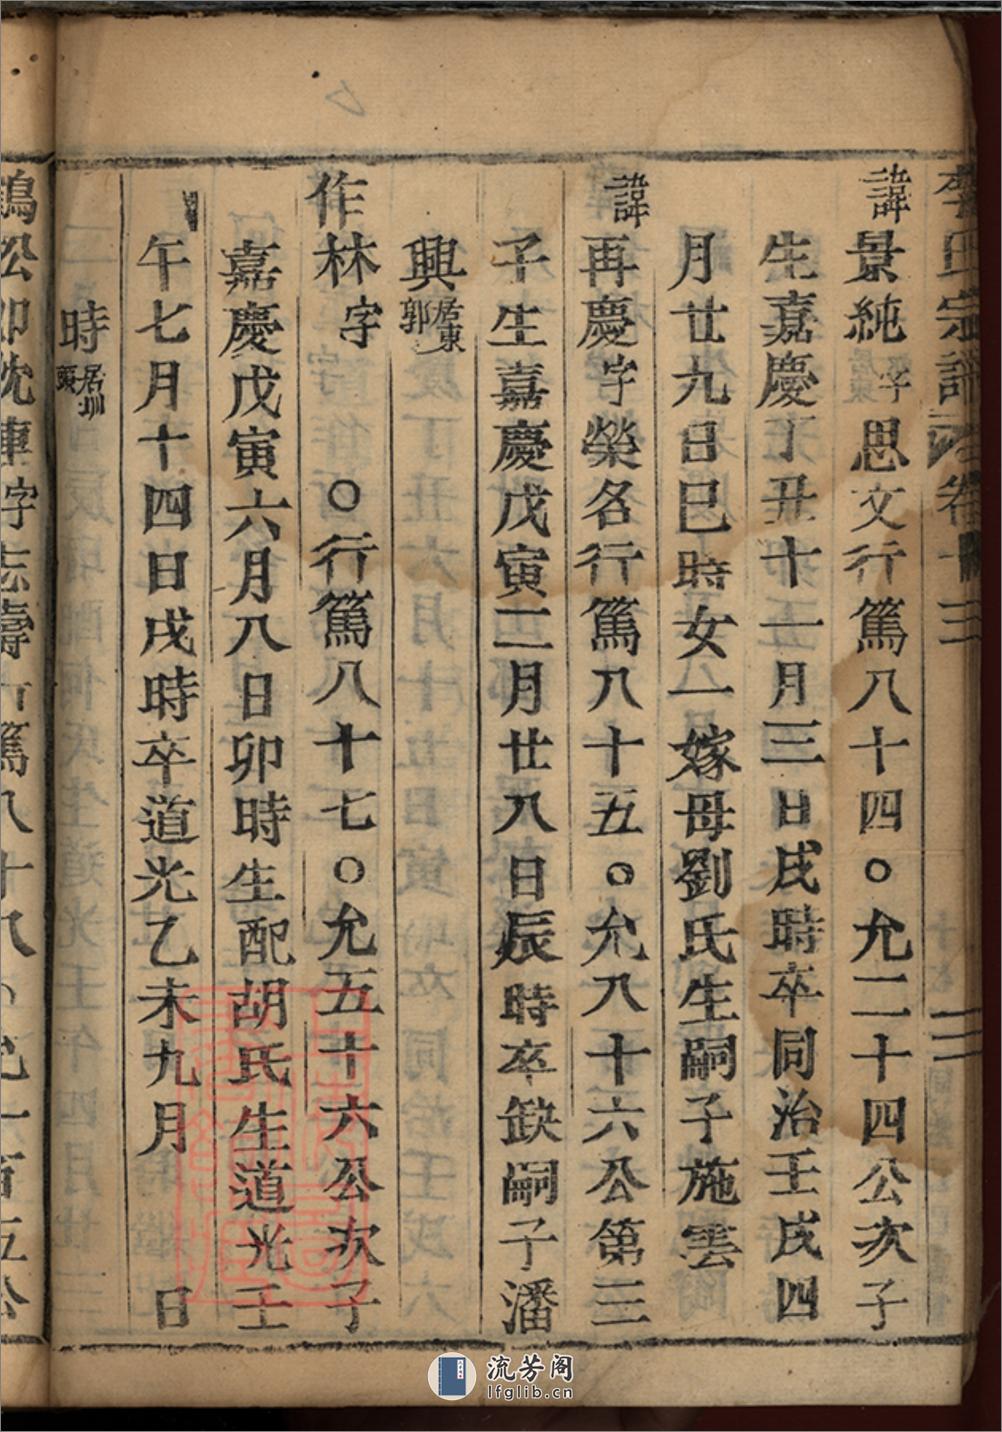 李氏宗譜 卷十三
諱景純字思文行篤八十四○允二十四公次子
生嘉慶丁丑十一月三日戌時卒同治壬戌四
月廿九日巳時女一嫁母劉氏生嗣子施雲
諱再慶字榮各行篤八十五○允八十六公第三
子生嘉慶戊寅二月廿八日辰時卒缺嗣子潘
興居東郭
作林字 ○行篤八十七○允五十六公次子
嘉慶戊寅六月八日卯時生配胡氏生道光壬
午七月十四日戌時卒道光乙未九月 日
時居圳頭
鶴松 字志壽行篤八十八○允一百五公
流芳阁
lfglib.cn